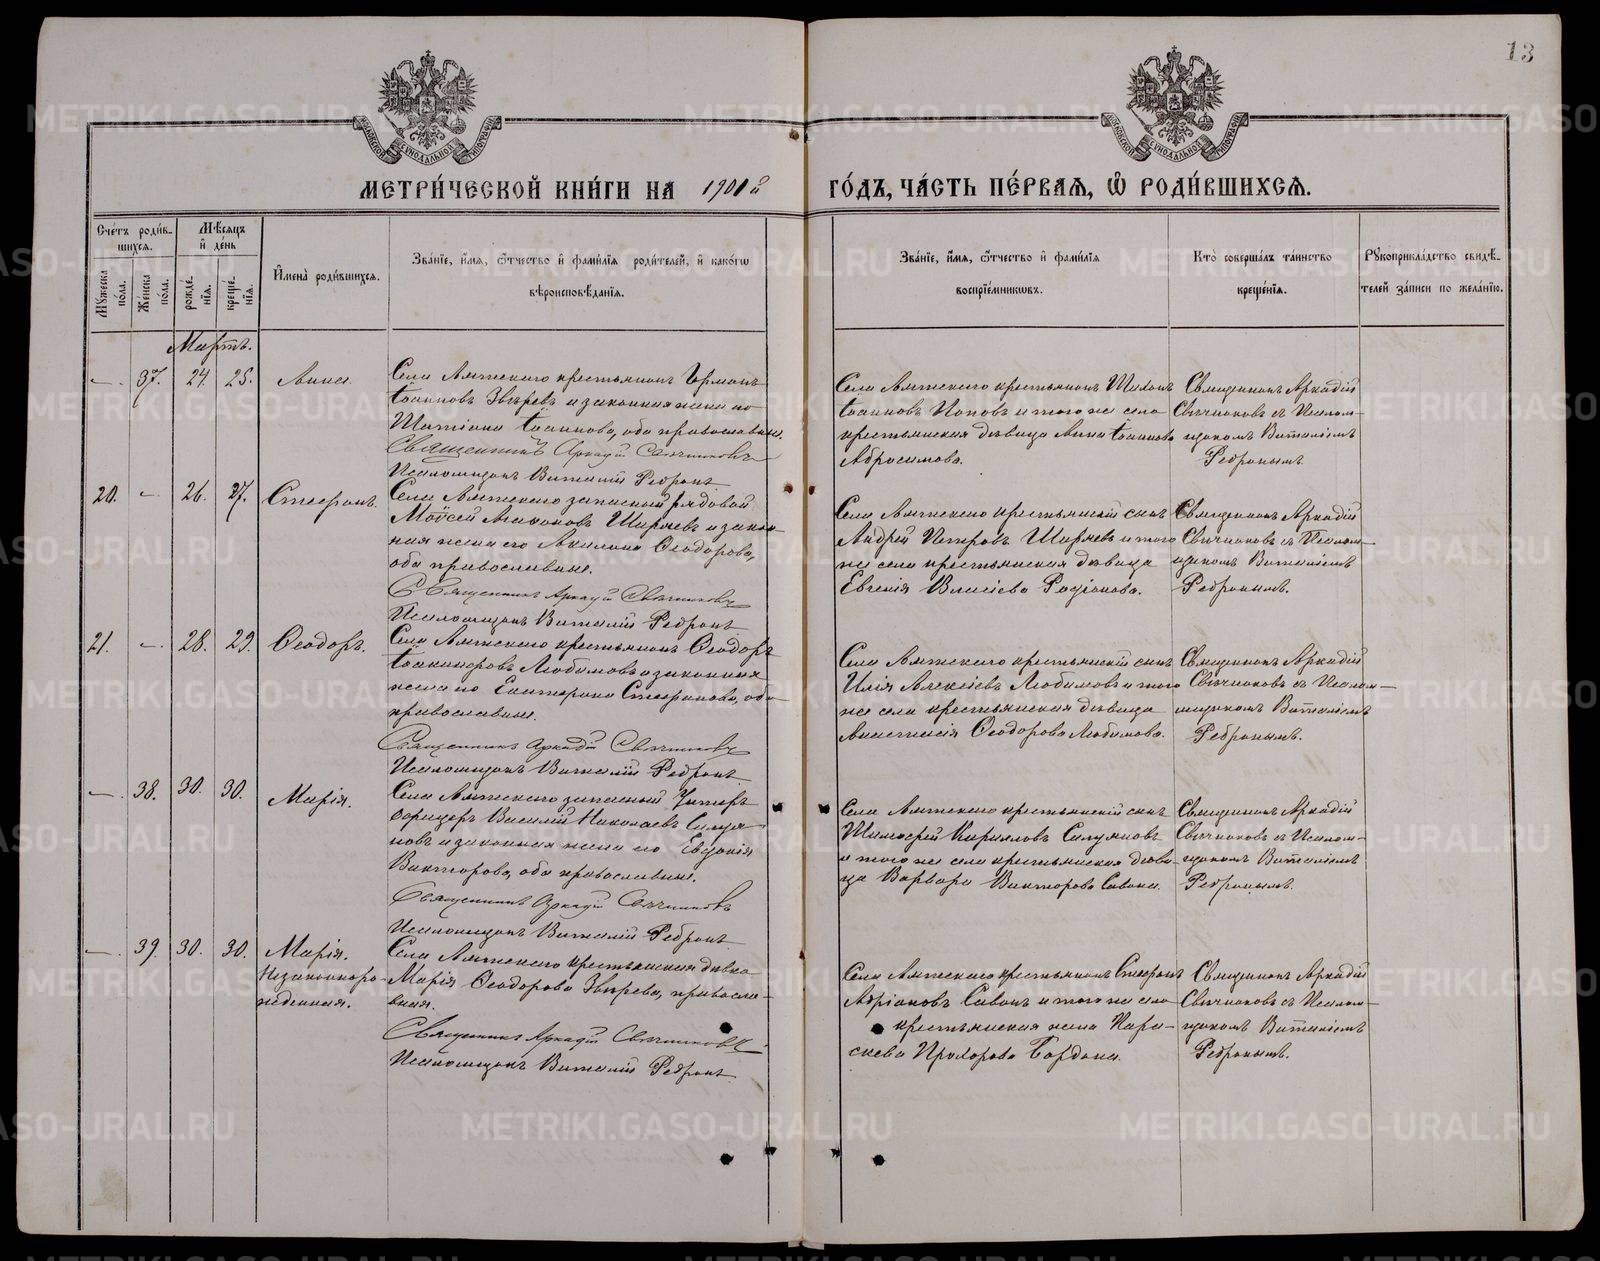 13
МОСКОВСКОЙ СѴНОДАЛЬНОЙ ТИПОГРАФІИ
МОСКОВСКОЙ СѴНОДАЛЬНОЙ ТИПОГРАФІИ
МЕТРИ́ЧЕСКОЙ КНИ́ГИ НА 1901й ГО́ДЪ, ЧА́СТЬ ПЕ́РВАЯ, Ѡ҆ РОДИ́ВШИХСЯ.
Сче́тъ роди́в-
шихся.
Мѣ́сяцъ
и҆ де́нь
Мꙋжеска по́ла.
Же́нска по́ла.
рожде́-
нїя.
креще́-
нїя.
И҆мена̀ роди́вшихся.
Зва́нїе, и҆́мя, ѻ҆́тчество и҆ фами́лїя роди́телей, и҆ како́гѡ
вѣроисповѣ́данїя.
Зва́нїе, и҆́мя, ѻ҆́тчество и҆ фами́лїя
воспрїе́мникѡвъ.
Кто̀ соверша́лъ та́инство
креще́нїя.
Рꙋкоприкла́дство свидѣ́-
телей за́писи по жела́нїю.
Мартъ.
— 37. 24. 25. Анна.
Села Аятскаго крестьянинъ Германъ
Іоанновъ Звѣревъ и законная жена его
Іоаннова, оба православные.
Священникъ Аркадій Свѣчниковъ
Псаломщикъ Виталій
Села Аятскаго крестьянинъ Тихонъ
Іоанновъ Поповъ и того же села
крестьянская дѣвица Анна Іоаннова
Абросимова.
Священникъ Аркадій
Свѣчниковъ съ Псалом-
щикомъ Виталіемъ
20. — 26. 27. Стефанъ.
Села Аятскаго запасный рядовой
Моѵсей Ширяевъ и закон-
ная жена его Акилина Ѳеодорова,
оба православные.
Священникъ Аркадій Свѣчниковъ
Псаломщикъ Виталій
Села Аятскаго крестьянскій сынъ
Андрей Петровъ Ширяевъ и того
же села крестьянская дѣвица
Евгенія Власіева Родіонова.
Священникъ Аркадій
Свѣчниковъ съ Псалом-
щикомъ Виталіемъ
21. — 28. 29. Ѳеодоръ.
Села Аятскаго крестьянинъ Ѳеодоръ
Любимовъ и законная
жена его Екатерина Стефанова, оба
православные.
Священникъ Аркадій Свѣчниковъ
Псаломщикъ Виталій
Села Аятскаго крестьянскій сынъ
Илія Алексіевъ Любимовъ и того
же села крестьянская дѣвица
Анастасія Ѳеодорова Любимова.
Священникъ Аркадій
Свѣчниковъ съ Псалом-
щикомъ Виталіемъ
— 38. 30. 30. Марія.
Села Аятскаго запасный Унтеръ
офицеръ Василій Николаевъ
и законная жена его Евдокія
Викторова, оба православные.
Священникъ Аркадій Свѣчниковъ
Псаломщикъ Виталій
Села Аятскаго крестьянскій сынъ
Тимоѳей Кирилловъ
и того же села крестьянская дѣви-
ца Варвара Викторова Савина.
Священникъ Аркадій
Свѣчниковъ съ Псалом-
щикомъ Виталіемъ
— 39. 30. 30. Марія.
Незаконноро-
жденная.
Села Аятскаго крестьянская дѣвка
Марія Ѳеодорова Звѣрева, православ-
ная.
Священникъ Аркадій Свѣчниковъ
Псаломщикъ Виталій
Села Аятскаго крестьянинъ Стефанъ
Адріановъ Савинъ и того же села
крестьянская жена Пара-
скева Прохорова
Священникъ Аркадій
Свѣчниковъ съ Псалом-
щикомъ Виталіемъ
METRIKI.GASO-URAL.RU